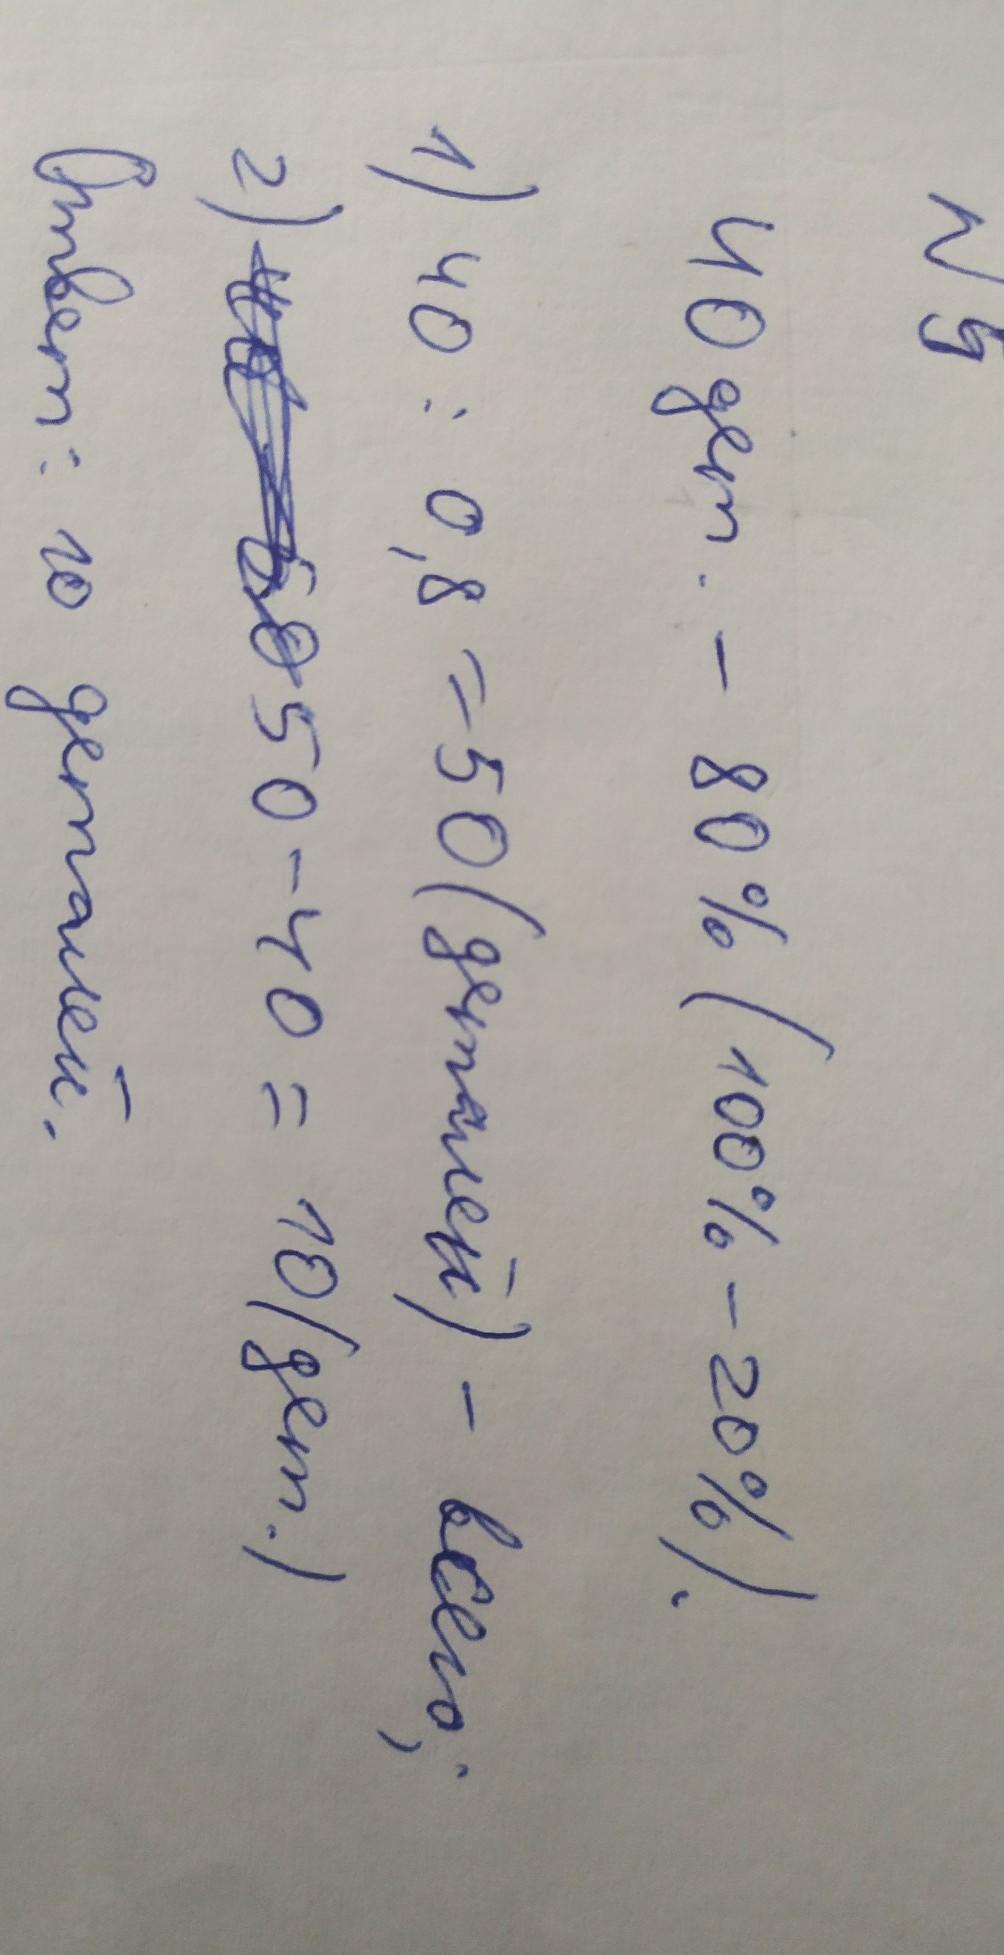 N 9
40 дет. - 80% (100% - 20%).
1) 40 : 0,8 = 50 (деталей) - всего;
2) 50 - 40 = 10 (дет.)
Ответ: 10 деталей.